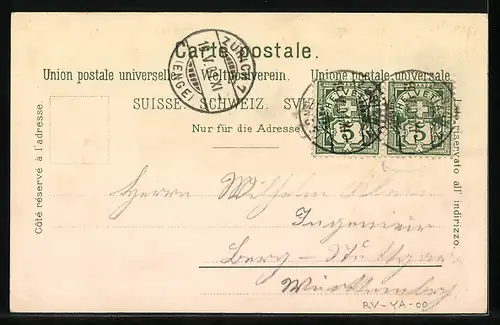 Carte postale.
Union postale universelle. Weltpostverein. Unione postale universale.
SUISSE. SCHWEIZ. SVIZ
Nur für die Adresse
Côté réservé à l'adresse.
Lato riservato all' indirizzo.
ZÜRICH 1
(ENGE)
HELVETIA
5
HELVETIA
5
Herrn Wilhelm
Ingenieur
Berg-Stuttgart
Württemberg
RV-YA-00